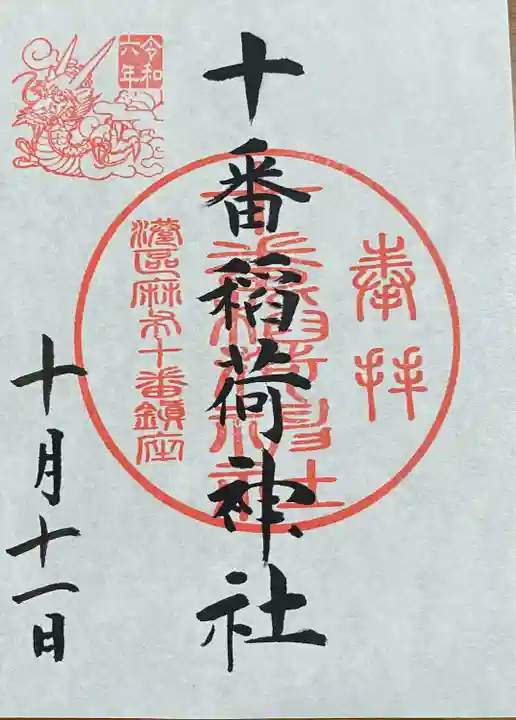 奉拝
十番稲荷神社
十番稲荷神社
港區麻布十番鎮座
令和
六年
十月十一日